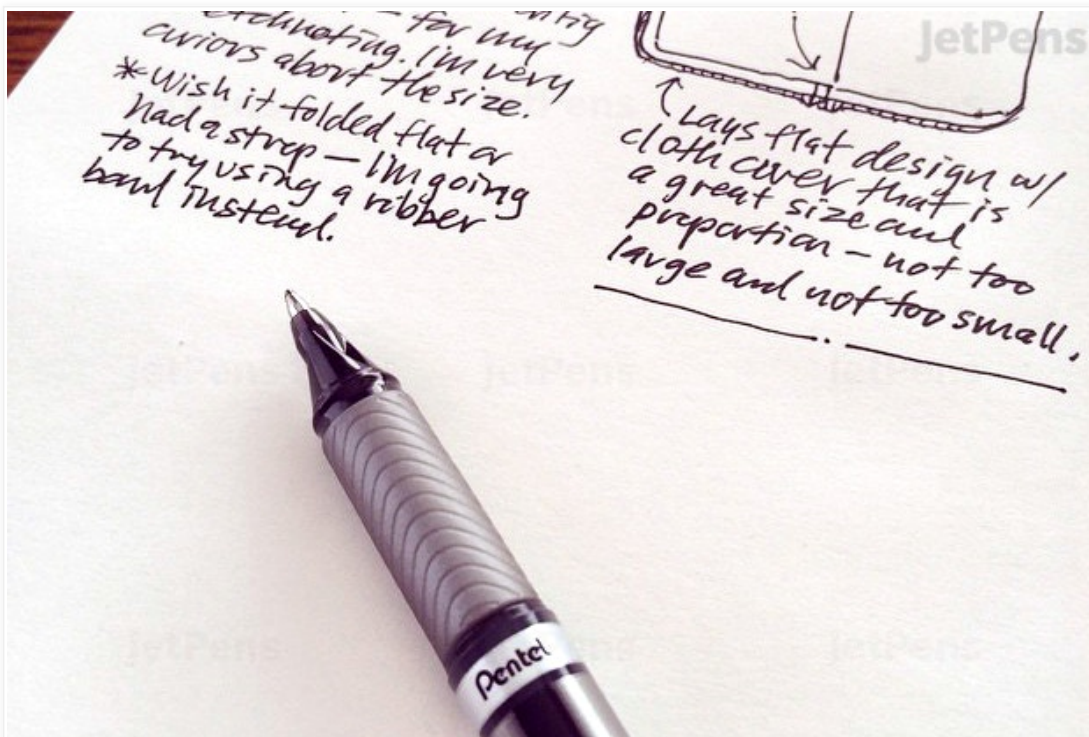 for my
sketchnoting. I'm very
curiors about the size.
* Wish it folded flat or
had a strap — I'm going
to try using a rubber
band instead.
Lays flat design w/
cloth cover that is
a great size and
proportion — not too
large and not too small.
Pentel
JetPens